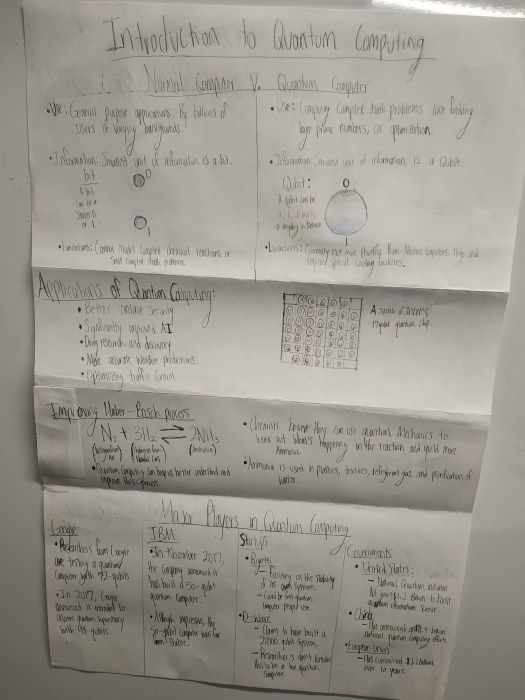 Introduction to Quantum Computing
Normal Computer V. Quantum Computer
• Use: General purpose applications for billions of
users of varying backgrounds.
• Information: Smallest unit of information is a bit.
0
bit
A bit
can be in
States 0
or 1
1
• Limitations: Cannot model complex chemical reactions or
Solve complex math problems.
• Use: Computing Complex math problems like finding
large prime numbers, or optimization.
• Information: unit of information is a Qubit.
Qubit:
0
A qubit can be
1
• Limitations: Currently not more than Normal Computers. Huge and
require special cooling facilities.
Applications of Quantum Computing:
• Better online Security
• Significantly improved AI
• Drug research and discovery
• More accurate weather predictions
• Optimizing traffic Control
A sketch of
17 qubit quantum chip.
Improving Haber-Bosch process
N₂ + 3H₂ ⇌ 2NH₃
(Ammonia)
• Quantum Computing can help us better understand and
improve this process.
• Chemists believe they can use quantum Mechanics to
work out what's happening in the reaction and yield more
Ammonia.
• Ammonia is used in plastics, textiles, refrigerant gas, and purification of
water.
Major Players in Quantum Computing
Google
• Researchers from Google
are testing a quantum
Computer with 72-qubits
• In 2017, Google
announced it intended to
achieve quantum Supremacy
with 49-qubits
IBM
• In November 2017,
the Company announced it
has built a 50-qubit
quantum Computer.
• Although impressive, the
50-qubit computer
Startups
• Rigetti
- Focusing on the stability
of its own systems.
computer people use.
• D-Wave
- Claims to have built a
2,000 qubit system.
- Researchers don't consider
this to be a true quantum
Computer.
Governments
• United States:
- National Quantum initiative
Act gives $1.2 billion to boost
quantum information Science.
• China
national quantum computing effort.
• European Union
- Has committed $1.1 billion
over 10 years.